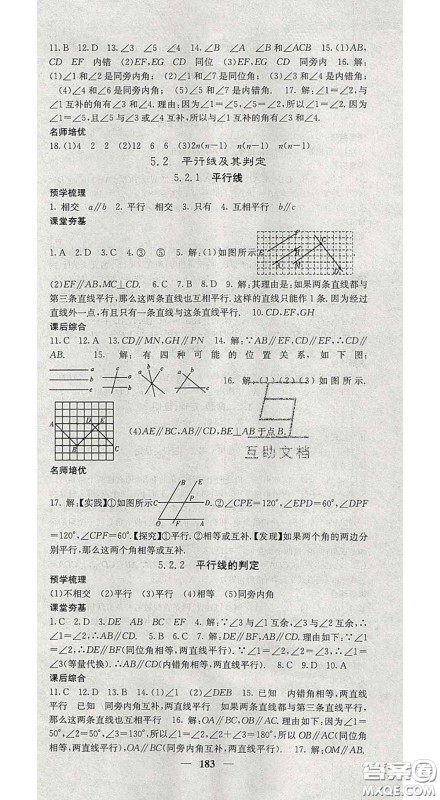 11. B　12. D　13. ∠1　∠5　∠4　14. ∠B　∠A和∠B和∠ACB　15. (1)AB,
CD　EF　内错　(2)EF,EG　CD　同位　(3)EF,EG　CD　同旁内　16. 解:
(1)∠1和∠2是同旁内角; (2)∠1和∠7是同位角; (3)∠3和∠4是内错角;
(4)∠4和∠6是同旁内角; (5)∠5和∠7是内错角.　17. 解:∠1=∠2,与
∠1互补的角有∠3和∠4. 理由:因为∠1=∠5,∠5=∠2,所以∠1=∠2. 因为
∠1=∠5,且∠5与∠3或∠4互补,所以与∠1互补的角有∠3和∠4.
名师培优
18. (1)4　2　2　(2)12　6　6　(3)2n(n−1)　n(n−1)　n(n−1)
5.2　平行线及其判定
5.2.1　平行线
预学梳理
1. 相交　a∥b　2. 平行　相交　3. 只有　4. 互相平行　b∥c
课堂夯基
1. A　2. D　3. C　4. ③　⑤　5. 解:(1)如图所示
(2)EF∥AB,MC⊥CD.　6. D　7. C　8. B　9. 解:其理由是:如果两条直线都与
第三条直线平行,那么这两条直线也互相平行. 这样的直线只能作1条. 因为经过
直线外一点,有且只有一条直线与这条直线平行.　10. CD,EF,GH
课后综合
11. C　12. A　13. CD∥MN,GH∥PN　14. 解:∵AB∥EF,CD∥EF,∴CD∥
AB.　15. 解:有四种可能的位置关系,如下图:
16. 解:(1)(2)(3)如图所示.
(4)AE∥BC,AB∥CD,BE⊥AB于点B.
互助文档
名师培优
17. 解:【实践】①如图所示
②∠CPE=60°,∠EPD=60°,∠DPF
=120°,∠CPF=60°.【探究】①平行. ②相等或互补.【发现】如果两个角的两边分
别平行,那么这两个角相等或互补.
5.2.2　平行线的判定
预学梳理
(1)不相交　(2)平行　(3)同位角　(4)内错角相等　(5)同旁内角
课堂夯基
1. C　2. D　3. DE　AB　BC　EF　4. 解:∵∠2与∠3互余,∠3与∠1互余,∴
∠1=∠2,∴AB∥CD.　5. C　6. D　7. C　8. 解:AB∥CD. 理由如下:∵∠1=
∠2,∴DE∥BF(同位角相等,两直线平行),∴∠3=∠2. 又∵∠1=∠2,∴∠1=
∠3(等量代换),∴AB∥CD(内错角相等,两直线平行).　9. C　10. A
课后综合
11. C　12. D　13. B　14. (1)∠1　(2)∠DEB　15. 已知　内错角相等,两直线
平行　已知　同旁内角互补,两直线平行　如果两条直线都与第三条直线平行,
那么这两条直线也互相平行　16. 解:OB∥AC,OA∥BC. 理由如下:因为∠1=
50°,∠2=50°,所以∠1=∠2,所以OB∥AC(同位
角相等,两直线平行),OA∥BC(同旁内角互补,两直线平行).　17. 解:OM∥AB.
183
答案圈
MXQE.COM